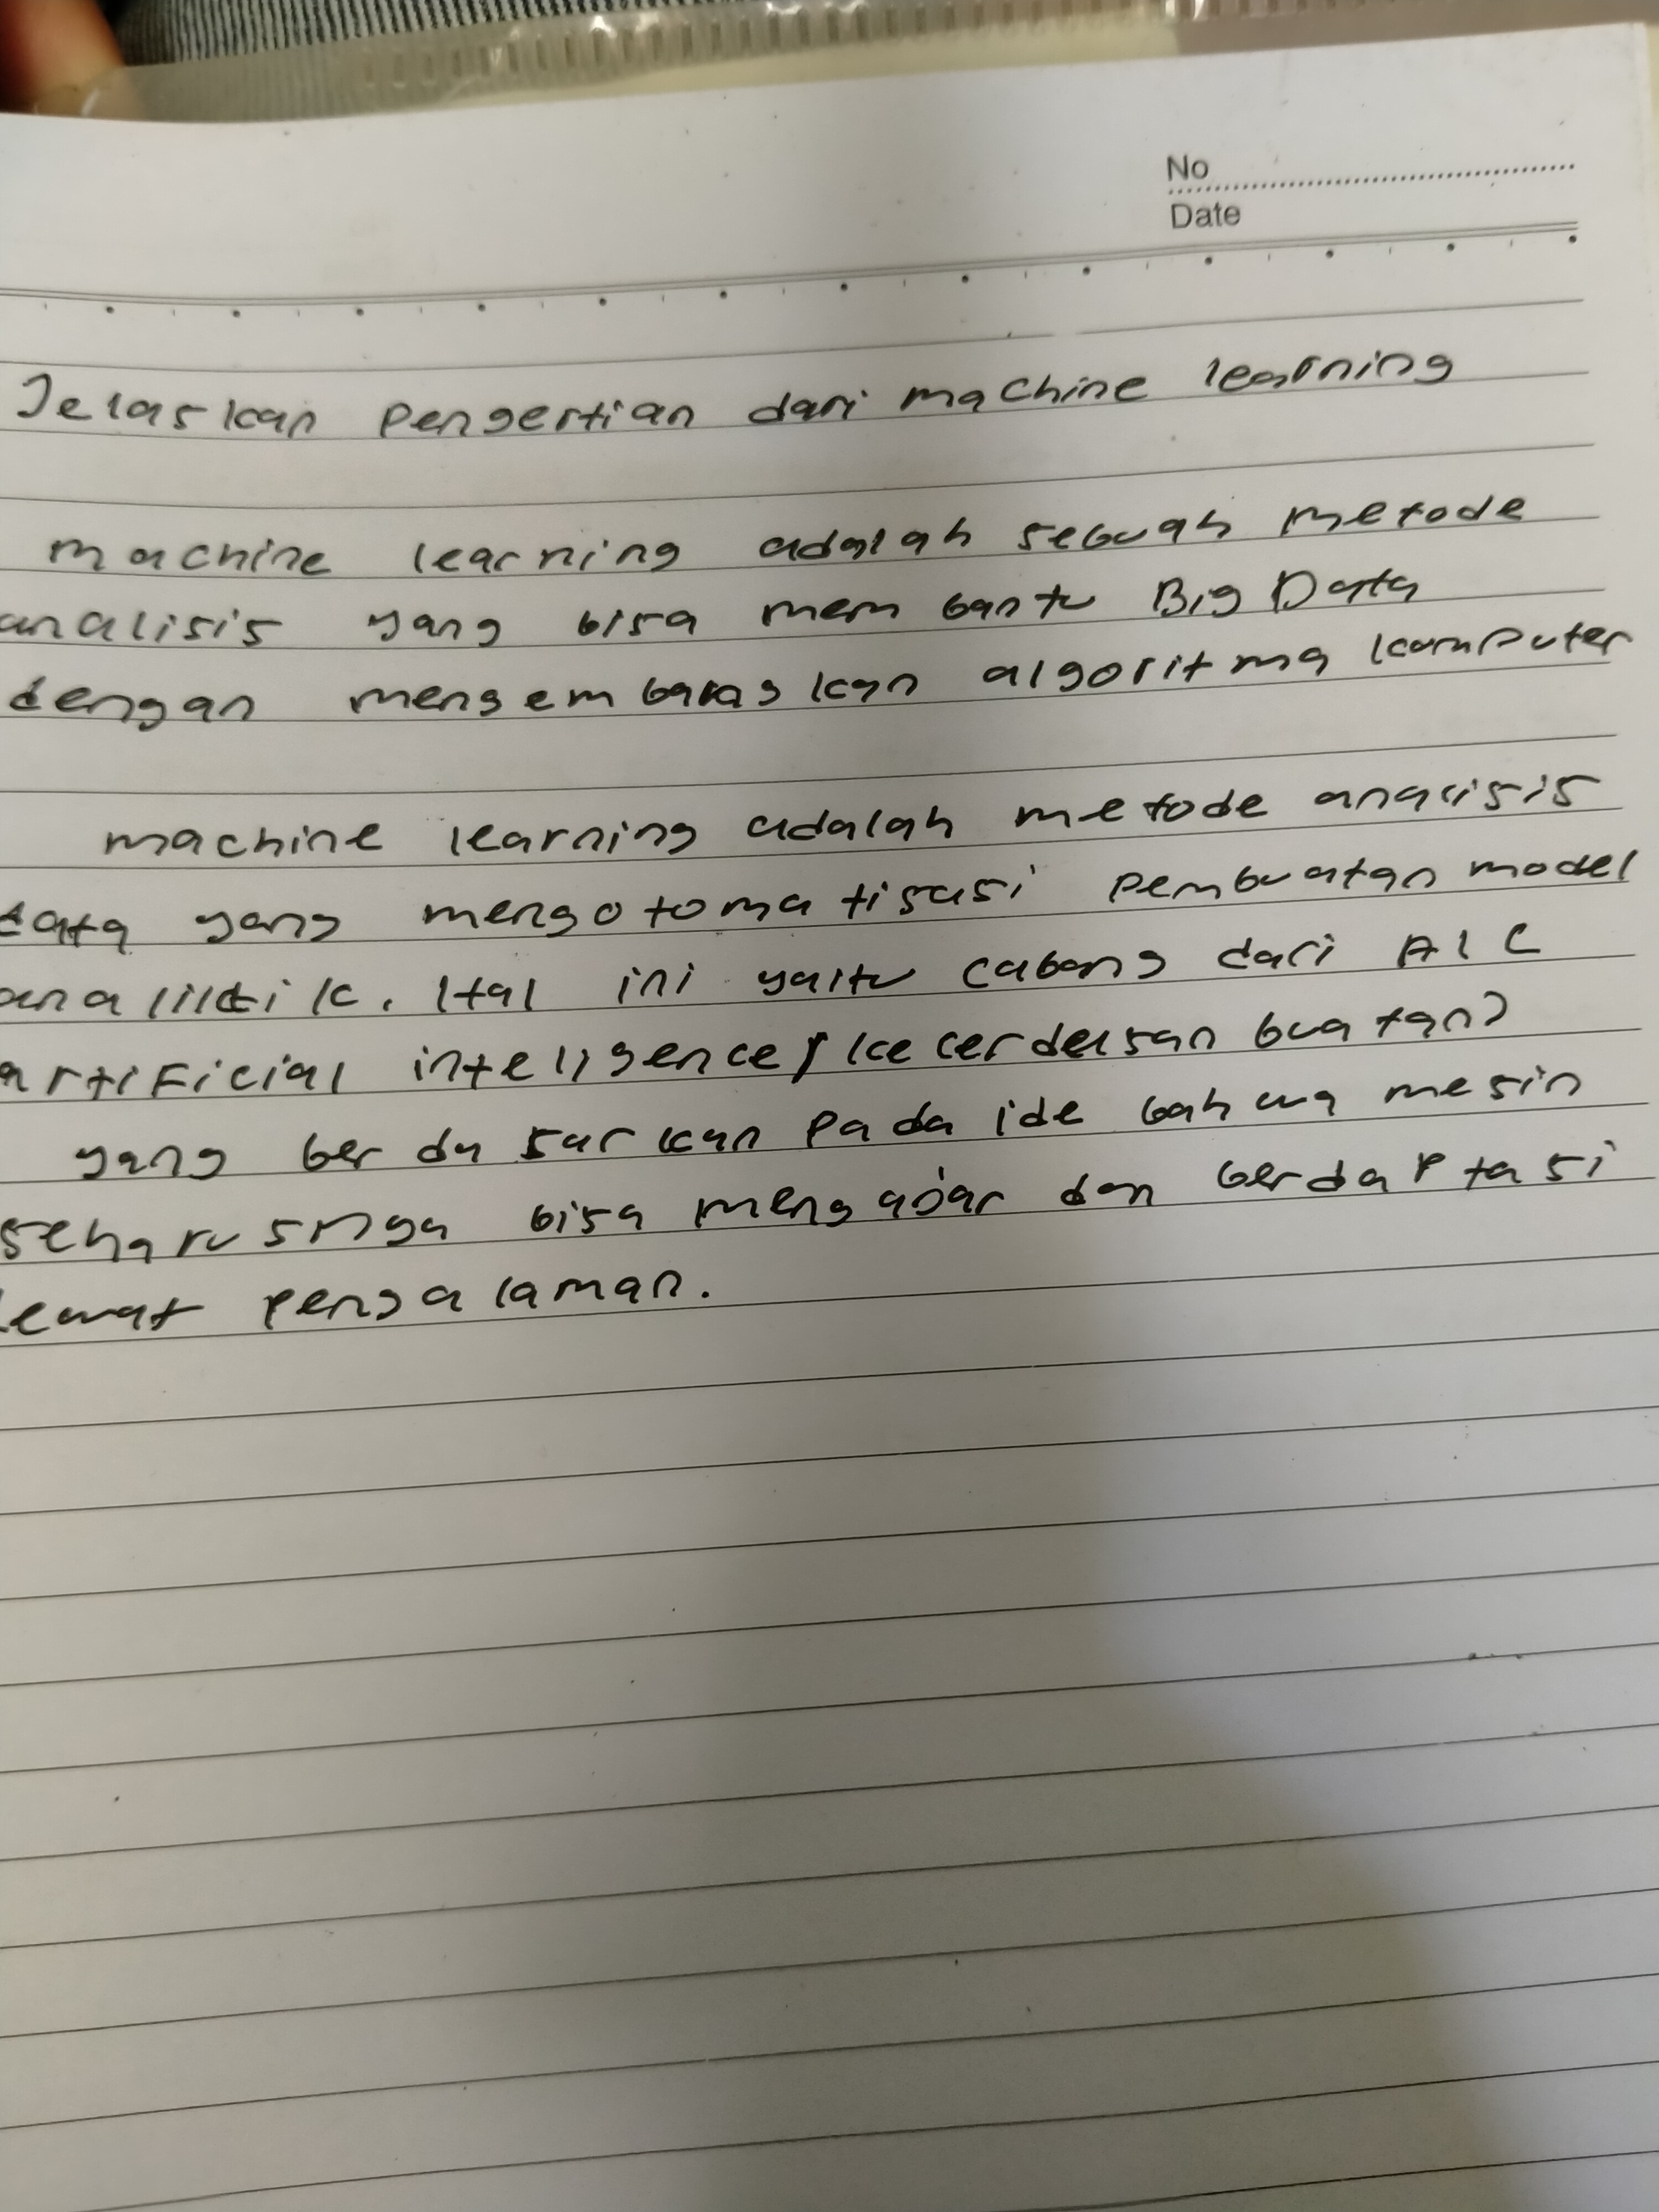 No
Date
Jelaskan Pengertian dari machine learning
machine learning adalah sebuah metode
analisis yang bisa membantu Big Data
dengan mengembangkan algoritma komputer
machine learning adalah metode analisis
data yang mengotomatisasi pembuatan model
analiktik. Hal ini yaitu cabang dari AI (
artificial intelligence / kecerdasan buatan)
yang berdasarkan pada ide bahwa mesin
seharusnya bisa mengajar dan berdaptasi
lewat pengalaman.